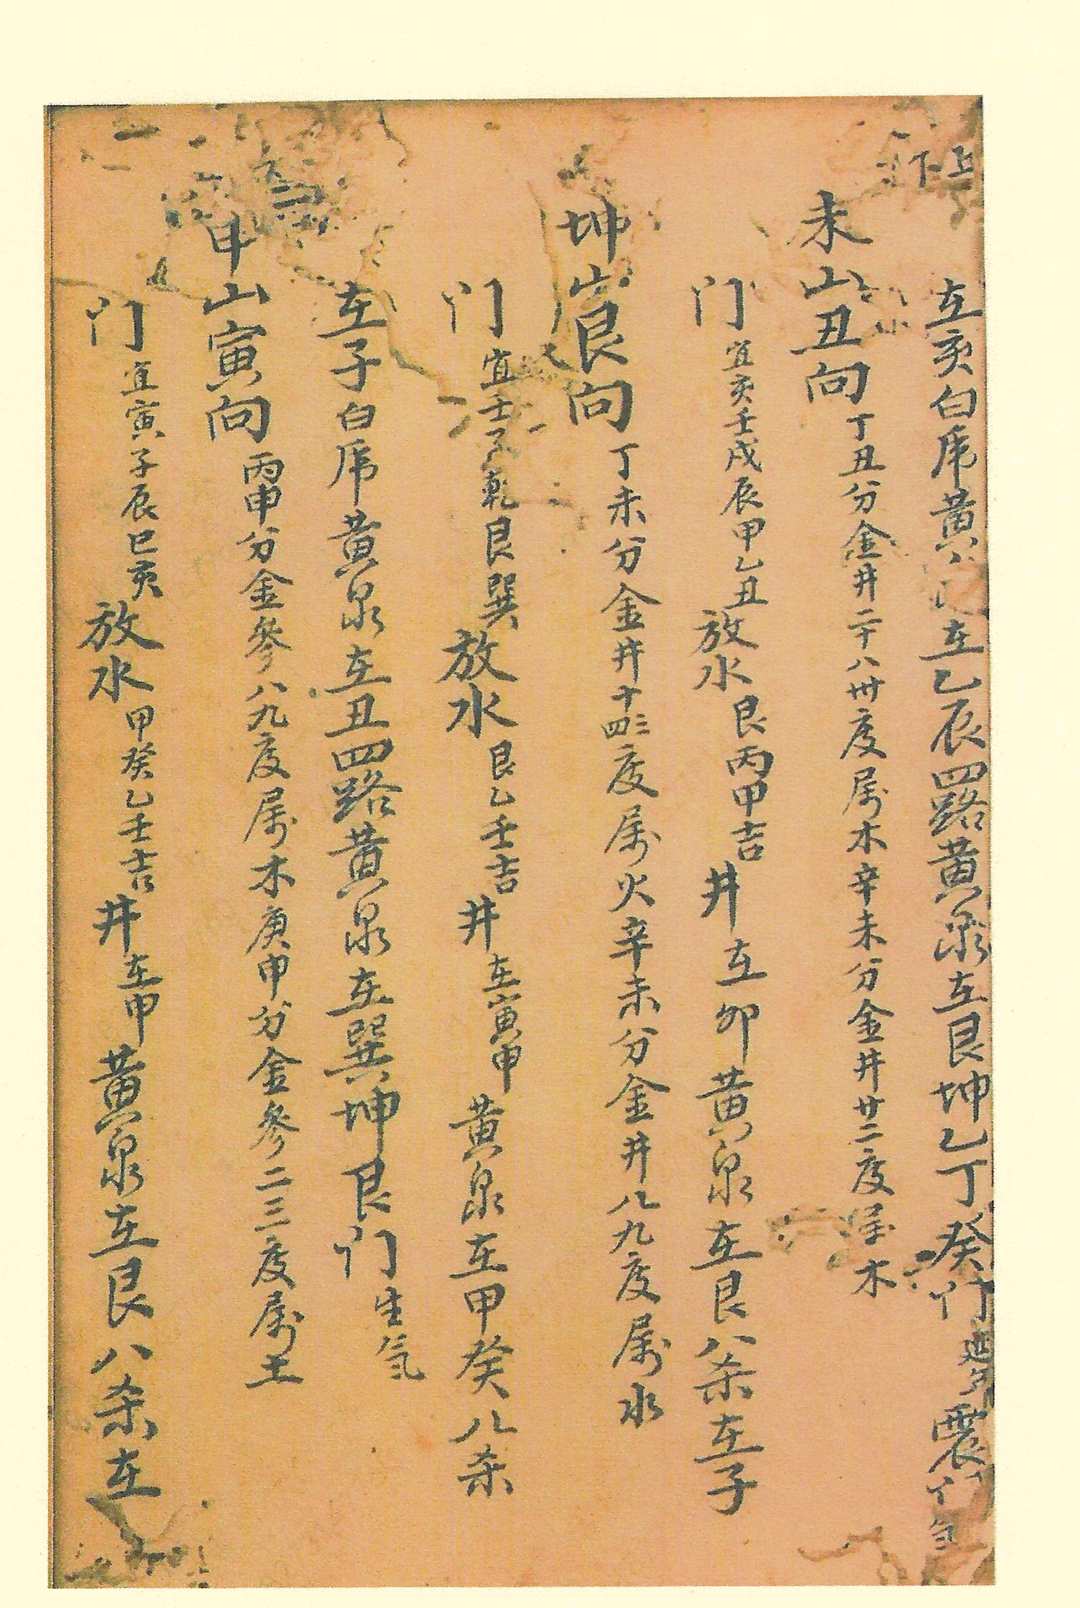 上下
在亥白席黄 在乙辰四路黄泉在艮坤乙丁癸门 震
未山丑向丁丑分金井二十八卅度属木辛未分金井廿二度属木
门宜亥壬戌辰甲乙丑放水艮丙甲吉井在卯黄泉在艮八杀在子
坤山艮向丁未分金井十三四度属火辛未分金井八九度属水
门宜壬子乾艮巽放水艮乙壬吉井在寅甲黄泉在甲癸八杀
在子白席黄泉在丑四路黄泉在巽坤艮门生氣
申山寅向丙申分金參八九度属木庚申分金參二三度属土
门宜寅子辰巳亥放水甲癸乙壬吉井在甲黄泉在艮八杀在